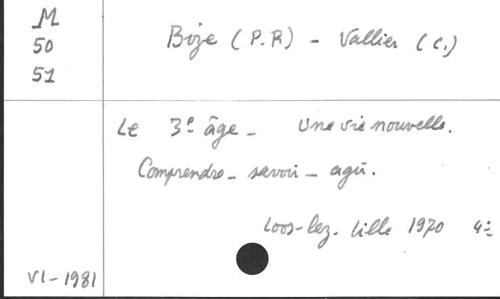 M
50
51
Bize (P.R) - Vallier (C.)
Le 3e âge - Une vie nouvelle.
Comprendre - savoir - agir.
Loos-lez-Lille 1970 4°
VI-1981